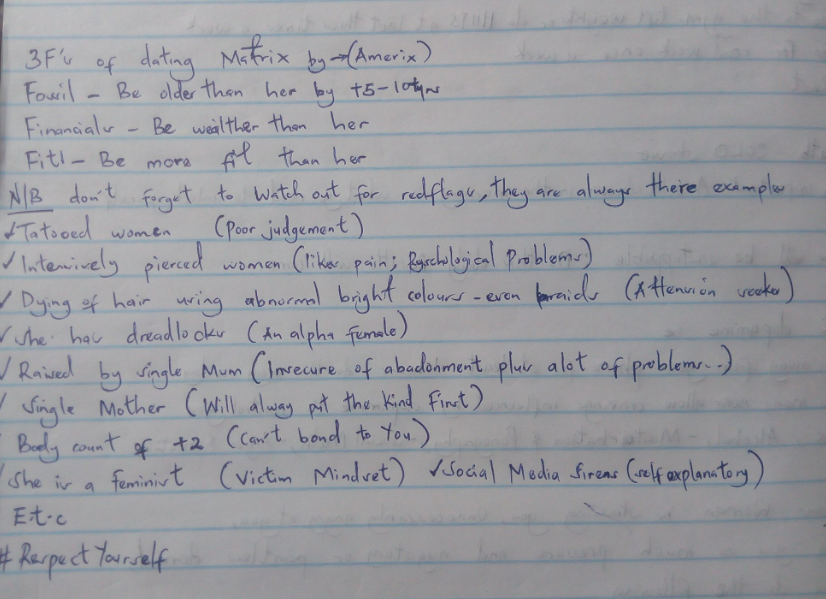 3F's of dating Matrix by → (Amerix)
Fossil - Be older than her by +5-10+yrs
Financials - Be wealther than her
Fit! - Be more fit than her
N/B don't forget to watch out for redflags, they are always there examples
✓Tatooed women (Poor judgement)
✓Intensively pierced women (likes pain; Pyschological Problems)
✓Dying of hair using abnormal bright colours - even braids (Attension seeker)
✓She has dreadlocks (An alpha female)
✓Raised by single Mum (Insecure of abadonment plus alot of problems..)
✓Single Mother (Will alway put the kind First)
✓Body count of +2 (Can't bond to You)
✓She is a feminist (Victim Mindset) ✓Social Media Sirens (self explanatory)
E.t.c
# Respect Yourself